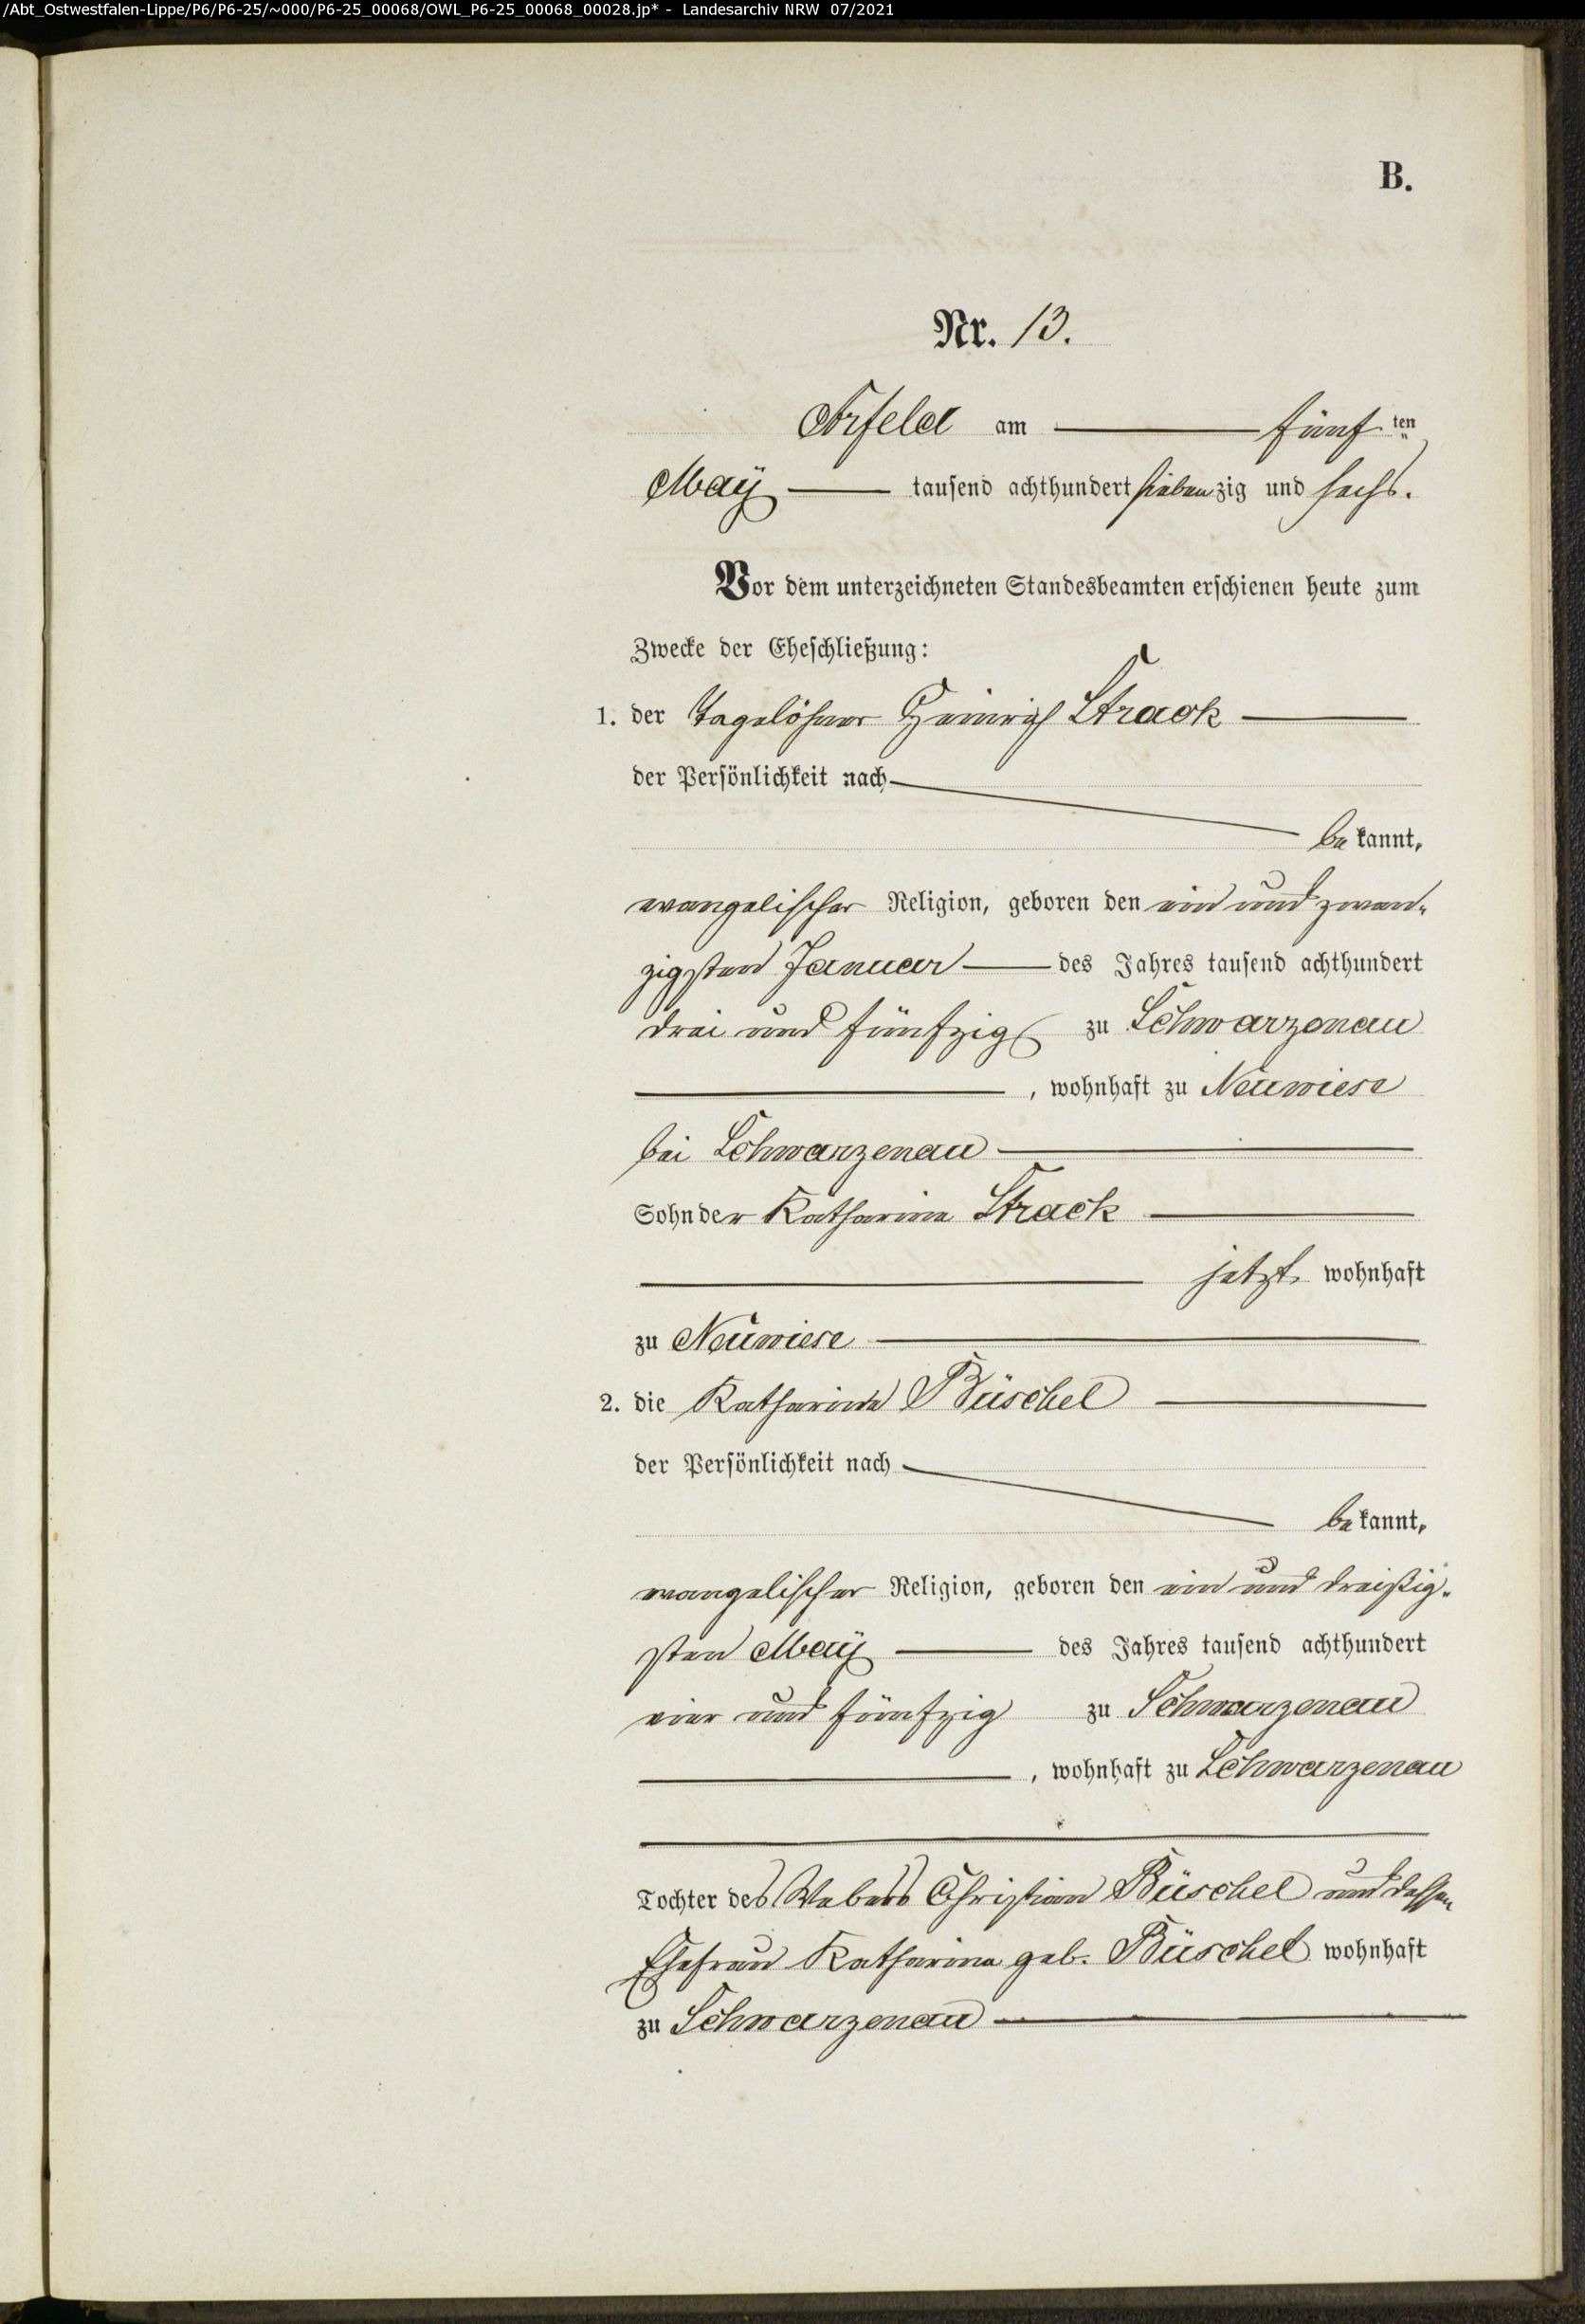 /Abt_Ostwestfalen-Lippe/P6/P6-25/~000/P6-25_00068/OWL_P6-25_00068_00028.jp* - Landesarchiv NRW 07/2021
B.
Nr. 13.
Arfeld am fünf ten
May tausend achthundert siebenzig und sechs.
Vor dem unterzeichneten Standesbeamten erschienen heute zum
Zwecke der Eheschließung:
1. der Tagelöhner Heinrich Strack
der Persönlichkeit nach
bekannt,
evangelischer Religion, geboren den ein und zwan-
zigsten Januar des Jahres tausend achthundert
drei und fünfzig zu Schwarzenau
, wohnhaft zu Neuwiese
bei Schwarzenau
Sohn der Katharina Strack
jetzt wohnhaft
zu Neuwiese
2. die Katharina Büschel
der Persönlichkeit nach
bekannt,
evangelischer Religion, geboren den ein und dreißig-
sten May des Jahres tausend achthundert
vier und fünfzig zu Schwarzenau
, wohnhaft zu Schwarzenau
Tochter des Webers Christian Büschel und dessen
Ehefrau Katharina geb. Büschel wohnhaft
zu Schwarzenau